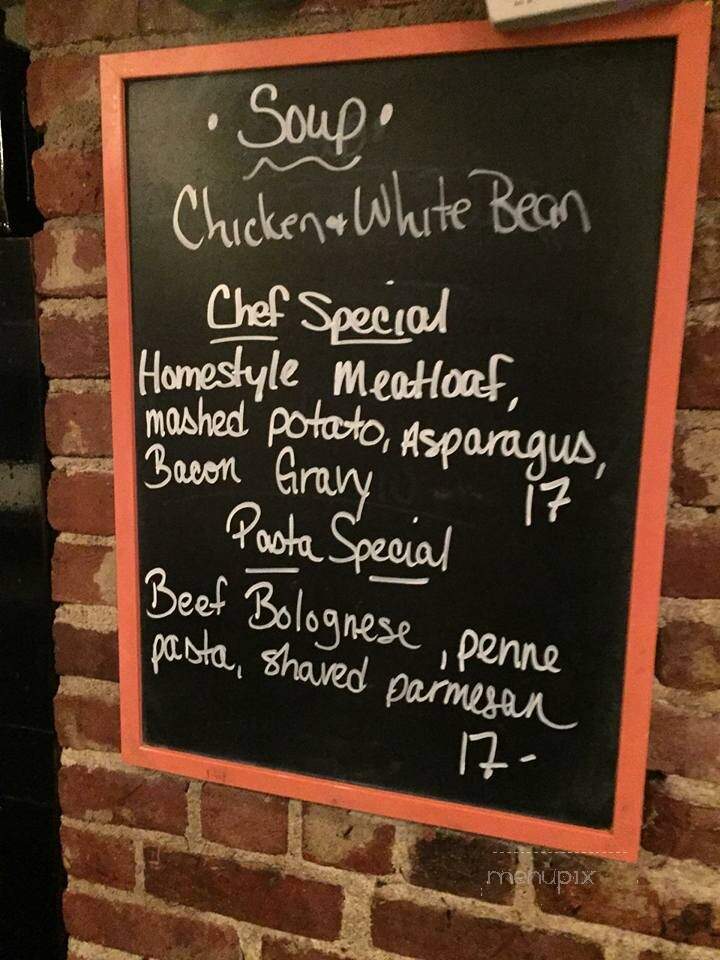 • Soup •
Chicken & White Bean
Chef Special
Homestyle Meatloaf,
mashed potato, Asparagus,
Bacon Gravy 17
Pasta Special
Beef Bolognese, penne
pasta, shaved parmesan
17-
menupix